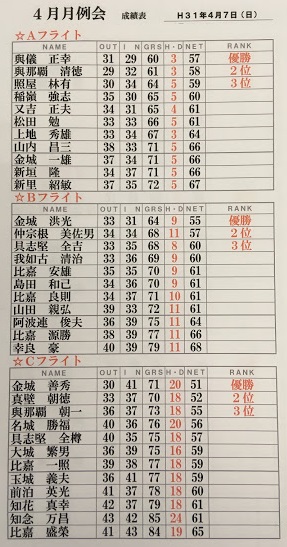 ４月月例会 成績表 Ｈ３１年４月７日（日）
☆Ａフライト
NAME OUT I N GRS H・D NET RANK
與儀 正幸 31 29 60 3 57 優勝
與那覇 清徳 29 32 61 3 58 ２位
照屋 林有 30 34 64 5 59 ３位
稲嶺 強志 35 30 65 5 60
又吉 正夫 31 34 65 4 61
松田 勉 33 33 66 5 61
上地 秀雄 33 34 67 3 64
山内 昌三 38 33 71 5 66
金城 一雄 37 34 71 5 66
新垣 隆 34 37 71 5 66
新里 紹敏 37 35 72 5 67
☆Ｂフライト
NAME OUT I N GRS H・D NET RANK
金城 洪光 33 31 64 9 55 優勝
仲宗根 美佐男 34 34 68 11 57 ２位
具志堅 全吉 33 35 68 8 60 ３位
我如古 清治 33 36 69 9 60
比嘉 安雄 35 35 70 9 61
島田 和己 34 36 70 9 61
比嘉 良則 34 37 71 10 61
山田 親弘 39 33 72 11 61
阿波連 俊夫 36 39 75 11 64
比嘉 源勝 36 41 77 11 66
幸良 豪 40 39 79 11 68
☆Ｃフライト
NAME OUT I N GRS H・D NET RANK
金城 善秀 30 41 71 20 51 優勝
真壁 朝徳 33 37 70 18 52 ２位
與那覇 朝一 36 37 73 18 55 ３位
名城 勝福 40 36 76 20 56
具志堅 全樽 40 35 75 18 57
大城 繁男 36 39 75 16 59
比嘉 一照 39 38 77 18 59
玉城 義夫 36 41 77 18 59
前泊 英光 41 37 78 18 60
知花 真幸 42 37 79 18 61
知念 万昌 43 42 85 24 61
比嘉 盛榮 41 43 84 19 65